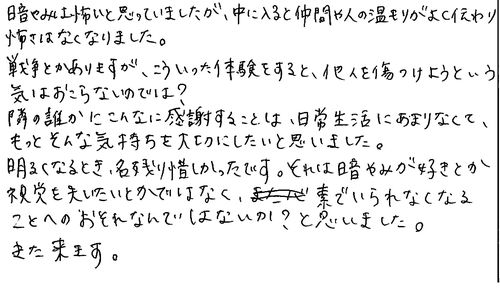 暗やみは怖いと思っていましたが、中に入ると仲間や人の温もりがよく伝わり
怖さはなくなりました。
戦争とかありますが、こういった体験をすると、他人を傷つけようという
気はおこらないのでは？
隣の誰かにこんなに感謝することは、日常生活にあまりなくて、
もっとそんな気持ちを大切にしたいと思いました。
明るくなるとき、名残り惜しかったです。それは暗やみが好きとか
視覚を失いたいとかではなく、素でいられなくなる
ことへのおそれなんではないか？と思いました。
また来ます。